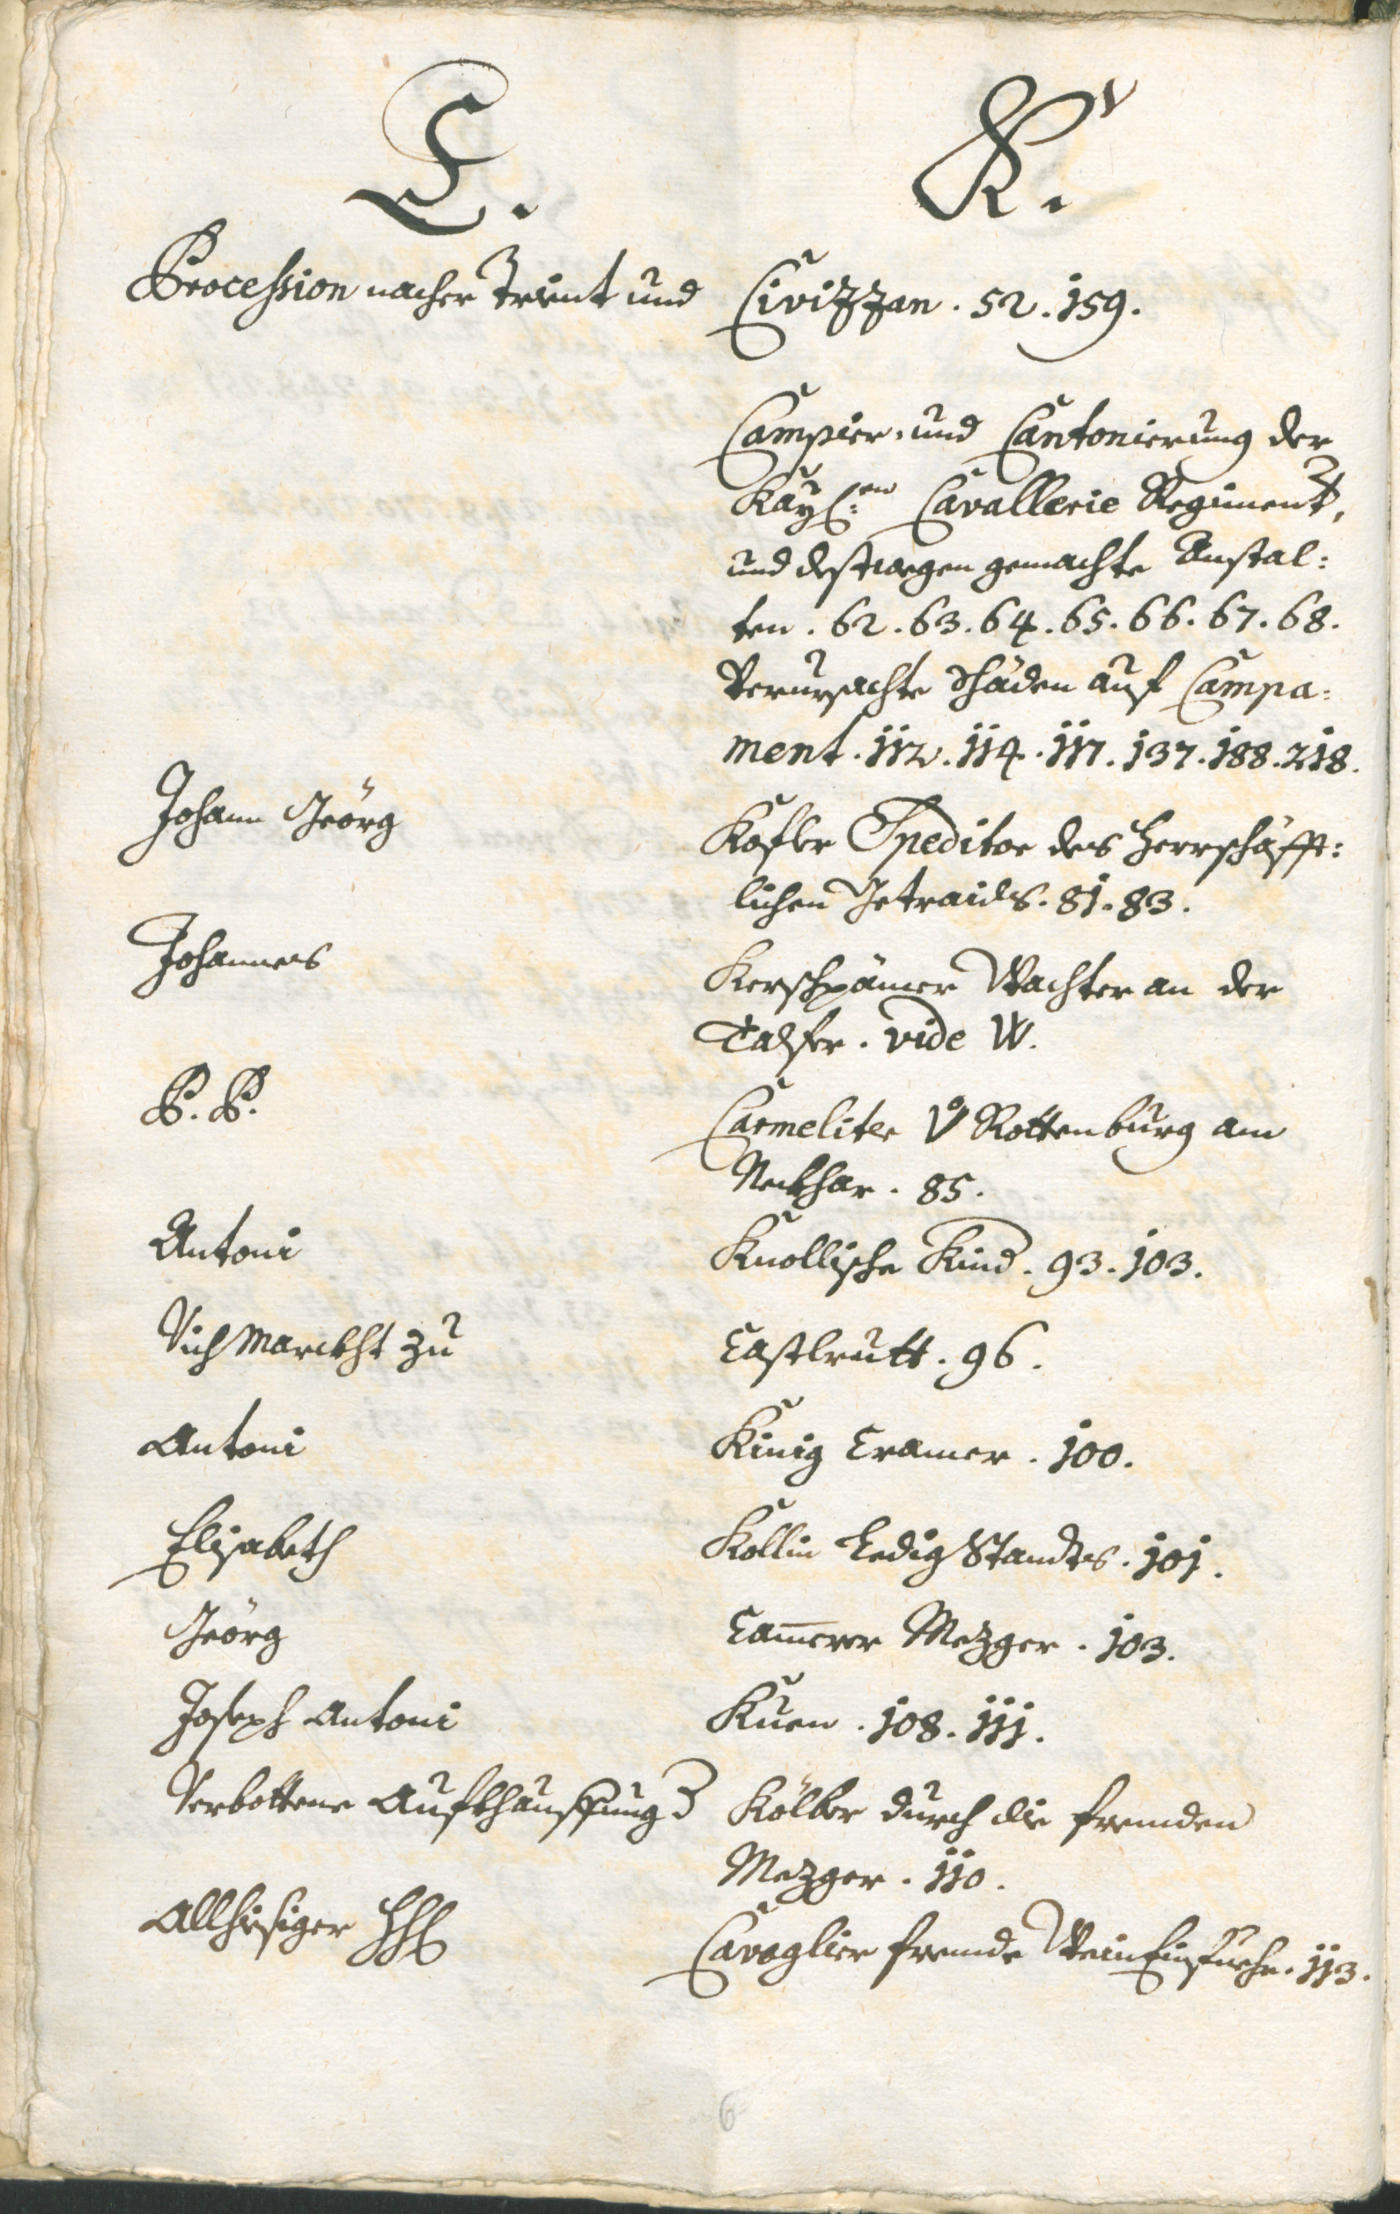 C. K.
Procession nacher Trient und Civizzan . 52 . 159.
Campier- und Cantonierung der
Kayl:en Cavallerie Regiment,
und destwegen gemachte Anstal:
ten . 62 . 63 . 64 . 65 . 66 . 67 . 68.
Verursachte Schäden auf Campa:
ment . 112 . 114 . 117 . 137 . 188 . 218.
Johann Geörg Kofler Speditor des Herrschäfft:
lichen Getraids . 81 . 83.
Johannes Kerschpämer Wachter an der
Talfer . vide W.
P. P. Carmeliter v Rottenburg am
Neckhar . 85.
Antoni Knollische Kind . 93 . 103.
Vich Marckht zu Castlrutt . 96.
Antoni Kinig Cramer . 100.
Elisabeth Kollin Ledig Standts . 101.
Geörg Cam̅erer Mezger . 103.
Joseph Antoni Kuen . 108 . 111.
Verbottene Aufkhauffung Kölber durch die fremden
Mezger . 110.
Allhiesiger HH Cavaglier fremde Wein Einfuehr . 113.
6